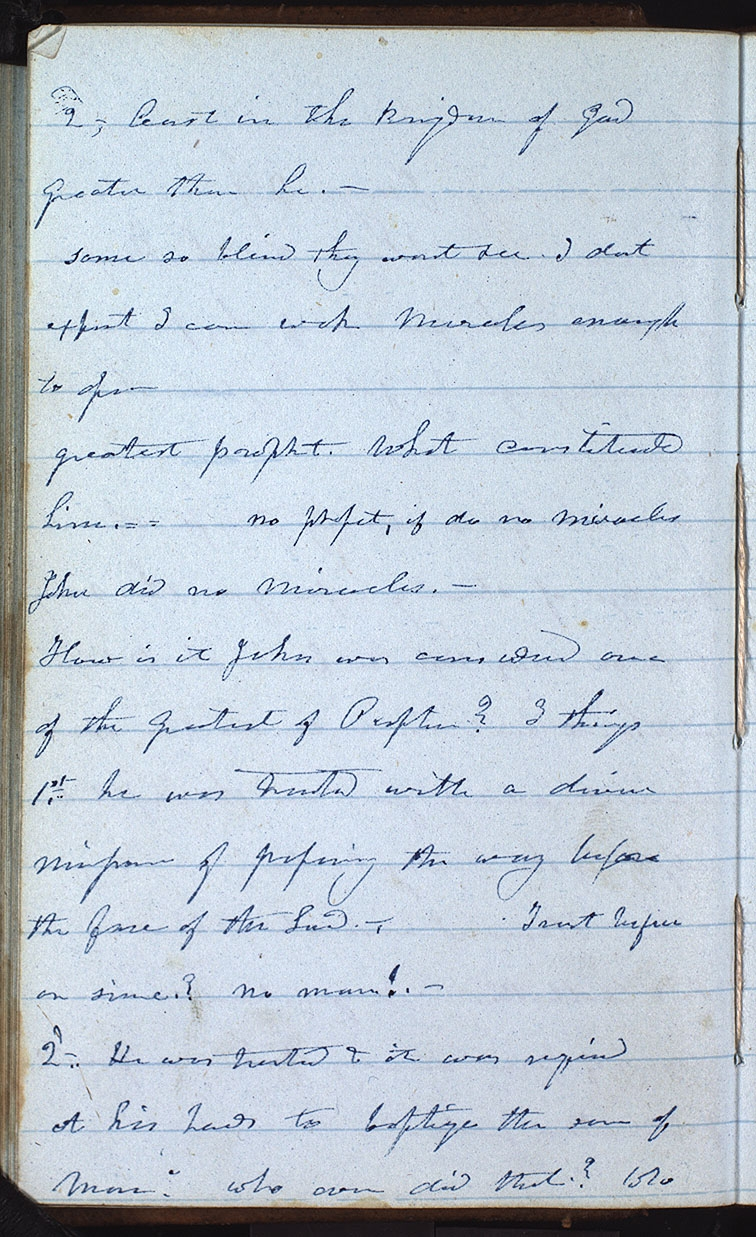 2, least in the kingdom of God
greater than he.—
some so blind they wont see. I dont
expect I can work Miracles enough
to open
greatest prophet. What constitute
him.= = no prophet, if do no miracles
John did no miracles.—
How is it John was considered one
of the greatest of Prophets? 3 things
1st he was trusted with a divine
mission of prepaing the way before
the face of the Lord.—, Trust before
or since? no man!.—
2d.. He was trusted & it was required
at his hands to baptize the son of
Man. who ever did that? Who